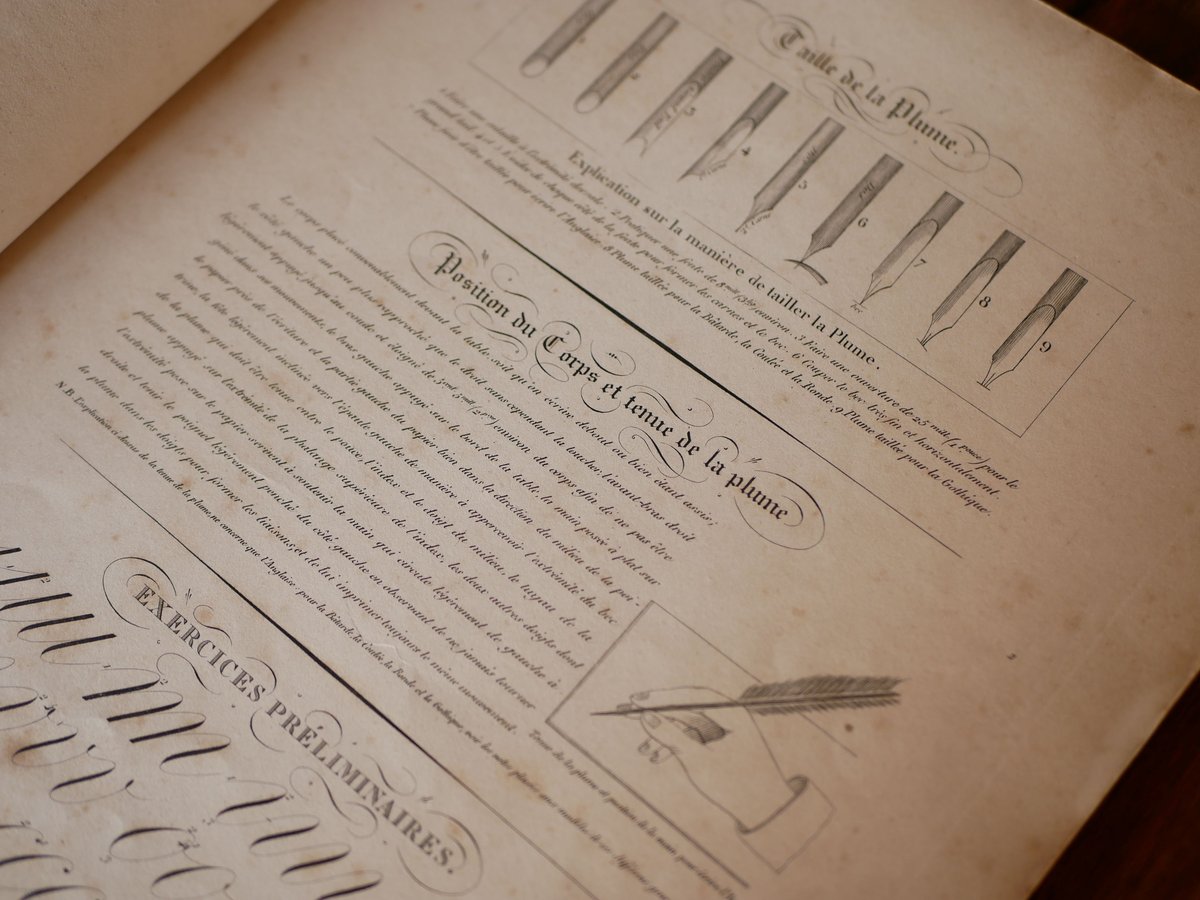 Taille de la Plume.
2
3
4
5
6
7
8
9
Explication sur la manière de tailler la Plume.
1 Faire une entaille à l'extrémité dorsale. 2 Pratiquer une fente de 8 mill. environ. 3 Faire une ouverture de 25 mill. (1 pouce) pour le
grand tail. 4 et 5 Evider de chaque côté de la fente pour former les carnes et le bec. 6 Couper le bec très fin et horizontalement.
Plume taillée pour écrire l'Anglaise. 8 Plume taillée pour la Bâtarde, la Coulée et la Ronde. 9 Plume taillée pour la Gothique.
Position du Corps et tenue de la plume
Le corps placé convenablement devant la table, soit qu'on écrive debout ou bien étant assis;
le côté gauche un peu plus approché que le droit sans cependant la toucher; l'avant-bras droit
légèrement appuyé jusqu'au coude et éloigné de environ du corps afin de ne pas être
gêné dans ses mouvements, le bras gauche appuyé sur le bord de la table, la main posée à plat sur
le papier près de l'écriture et la partie gauche du papier bien dans la direction du milieu de la poi-
trine, la tête légèrement inclinée vers l'épaule gauche de manière à apercevoir l'extrémité du bec
de la plume qui doit être tenue entre le pouce, l'index et le doigt du milieu, le tuyau de la
plume appuyé sur l'extrémité de la phalange supérieure de l'index, les deux autres doigts dont
l'extrémité pose sur le papier servent à soutenir la main qui circule légèrement de gauche à
droite et tenir le poignet légèrement penché du côté gauche en observant de ne jamais tourner
la plume dans les doigts pour former les liaisons, et de lui imprimer toujours le même mouvement.
N.B. L'explication ci-dessus de la tenue de la plume, ne concerne que l'Anglaise: pour la Bâtarde, la Coulée, la Ronde et la Gothique, voir les notes placées aux modèles de ces
Tenue de la plume et position de la main pour
EXERCICES PRÉLIMINAIRES.